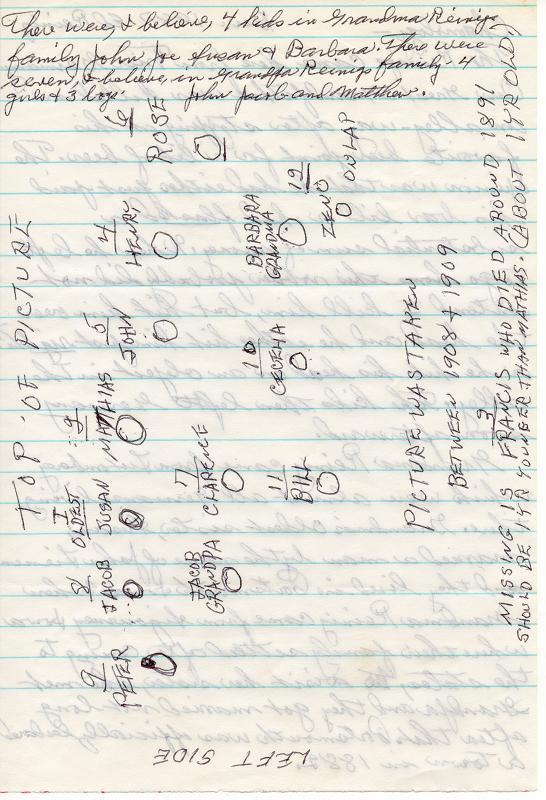 There were, I believe, 4 kids in Grandma Reinigs
family John Joe Susan & Barbara. There were
seven, I believe, in Grandpa Reinigs family - 4
girls & 3 boys. John Jacob and Matthew.
TOP OF PICTURE
9
PETER
8
JACOB
1
OLDEST
SUSAN
2
MATHIAS
5
JOHN
4
HENRY
6
ROSE
JACOB
GRANDPA
7
CLARENCE
11
BILL
10
CECELIA
BARBARA
GRANDMA
12
ZENO
ON LAP
PICTURE WAS TAKEN
BETWEEN 1908 & 1909
3
MISSING IS FRANCIS WHO DIED AROUND 1891
SHOULD BE 1 YR YOUNGER THAN MATHIAS. (ABOUT 1 YR OLD.)
LEFT SIDE